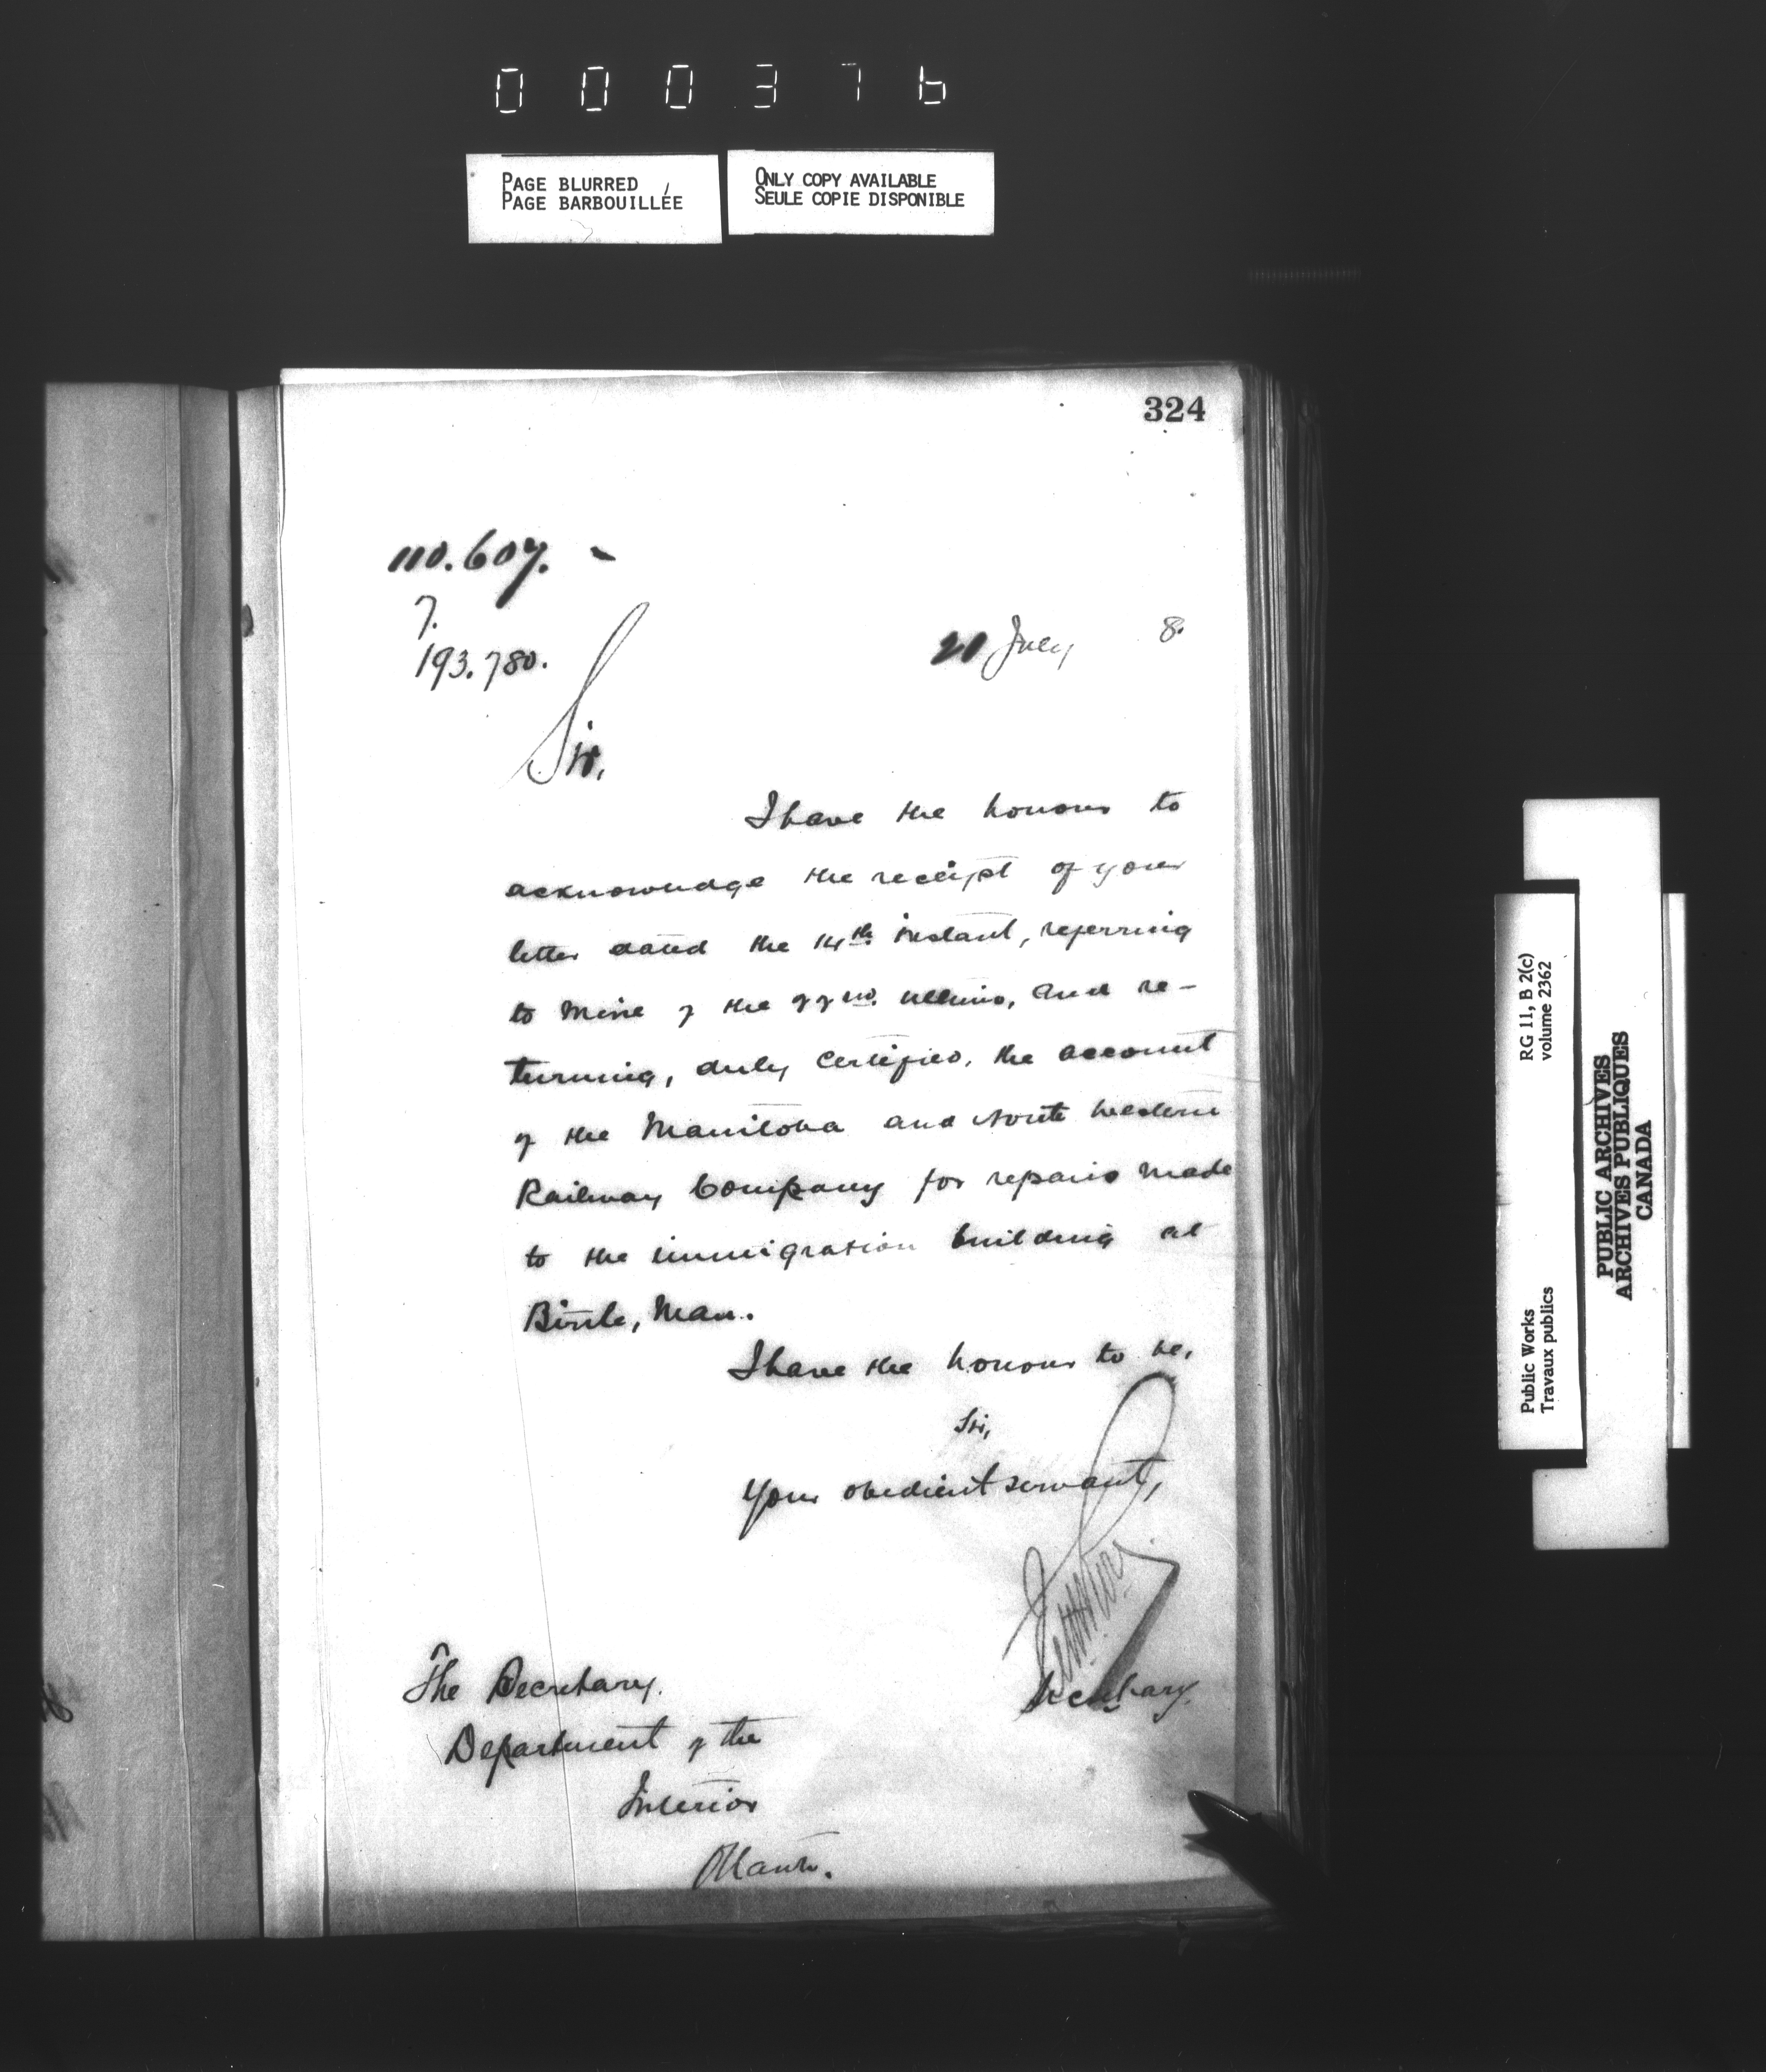 000376
PAGE BLURRED
PAGE BARBOUILLÉE
ONLY COPY AVAILABLE
SEULE COPIE DISPONIBLE
324
110.607. -
7.
193.780.
21 July 8.
Sir,
I have the honour to
acknowledge the receipt of your
letter dated the 14th instant, referring
to mine of the 22nd. ultimo, and re-
turning, duly certified, the account
of the Manitoba and North Western
Railway Company for repairs made
to the immigration building at
Birtle, Man.
I have the honour to be,
Sir,
Your obedient servant,
Secretary.
The Secretary.
Department of the
Interior
Ottawa.
Public Works
Travaux publics
RG 11, B 2(c)
volume 2362
PUBLIC ARCHIVES
ARCHIVES PUBLIQUES
CANADA